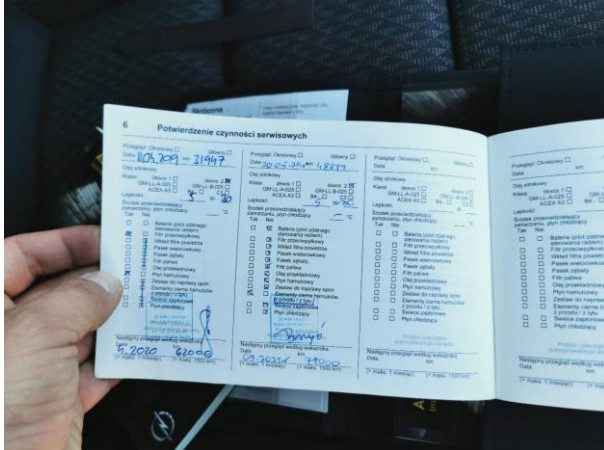 6 Potwierdzenie czynności serwisowych
Przegląd: Okresowy Główny
Data 11.04.2019 km 31947
Olej silnikowy
Klasa: dexos 1 dexos 2
GM-LL-A-025 GM-LL-B-025
ACEA A3 B4 C3
Lepkość: 5 W-30
Środek przeciwdziałający
zamarzaniu, płyn chłodzący °C
Tak Nie
Bateria (pilot zdalnego
sterowania radiem)
Filtr przeciwpyłkowy
Wkład filtra powietrza
Pasek wielorowkowy
Pasek zębaty
Filtr paliwa
Olej przekładniowy
Płyn hamulcowy
Zestaw do naprawy opon
Elementy cierne hamulców
z przodu / z tyłu
Świece zapłonowe
Płyn chłodzący
Następny przegląd według wskaźnika
Data km
4.2020 62000
(+ maks. 1 miesiąc) (+ maks. 1500 km)
Przegląd: Okresowy Główny
Data km 48889
Olej silnikowy
Klasa: dexos 1 dexos 2
GM-LL-A-025 GM-LL-B-025
ACEA A3 B4 C3
Lepkość: W-
Środek przeciwdziałający
zamarzaniu, płyn chłodzący °C
Tak Nie
Bateria (pilot zdalnego
sterowania radiem)
Filtr przeciwpyłkowy
Wkład filtra powietrza
Pasek wielorowkowy
Pasek zębaty
Filtr paliwa
Olej przekładniowy
Płyn hamulcowy
Zestaw do naprawy opon
Elementy cierne hamulców
z przodu / z tyłu
Świece zapłonowe
Płyn chłodzący
Następny przegląd według wskaźnika
Data km
79000
(+ maks. 1 miesiąc) (+ maks. 1500 km)
Przegląd: Okresowy Główny
Data km
Olej silnikowy
Klasa: dexos 1 dexos 2
GM-LL-A-025 GM-LL-B-025
ACEA A3 B4 C3
Lepkość: W-
Środek przeciwdziałający
zamarzaniu, płyn chłodzący °C
Tak Nie
Bateria (pilot zdalnego
sterowania radiem)
Filtr przeciwpyłkowy
Wkład filtra powietrza
Pasek wielorowkowy
Pasek zębaty
Filtr paliwa
Olej przekładniowy
Płyn hamulcowy
Zestaw do naprawy opon
Elementy cierne hamulców
z przodu / z tyłu
Świece zapłonowe
Płyn chłodzący
Następny przegląd według wskaźnika
Data km
(+ maks. 1 miesiąc) (+ maks. 1500 km)
Przegląd: Okresowy
Data
Olej silnikowy
Klasa: dexos 1
GM-LL-A-025
ACEA A3
Lepkość:
Środek przeciwdziałający
zamarzaniu, płyn chłodzący
Tak Nie
Bateria (pilot zdalnego
sterowania radiem)
Filtr przeciwpyłkowy
Wkład filtra powietrza
Pasek wielorowkowy
Pasek zębaty
Filtr paliwa
Olej przekładniowy
Płyn hamulcowy
Zestaw do naprawy
Elementy cierne
z przodu / z tyłu
Świece zapłonowe
Płyn chłodzący
Następny przegląd według
Data
(+ maks. 1 miesiąc)